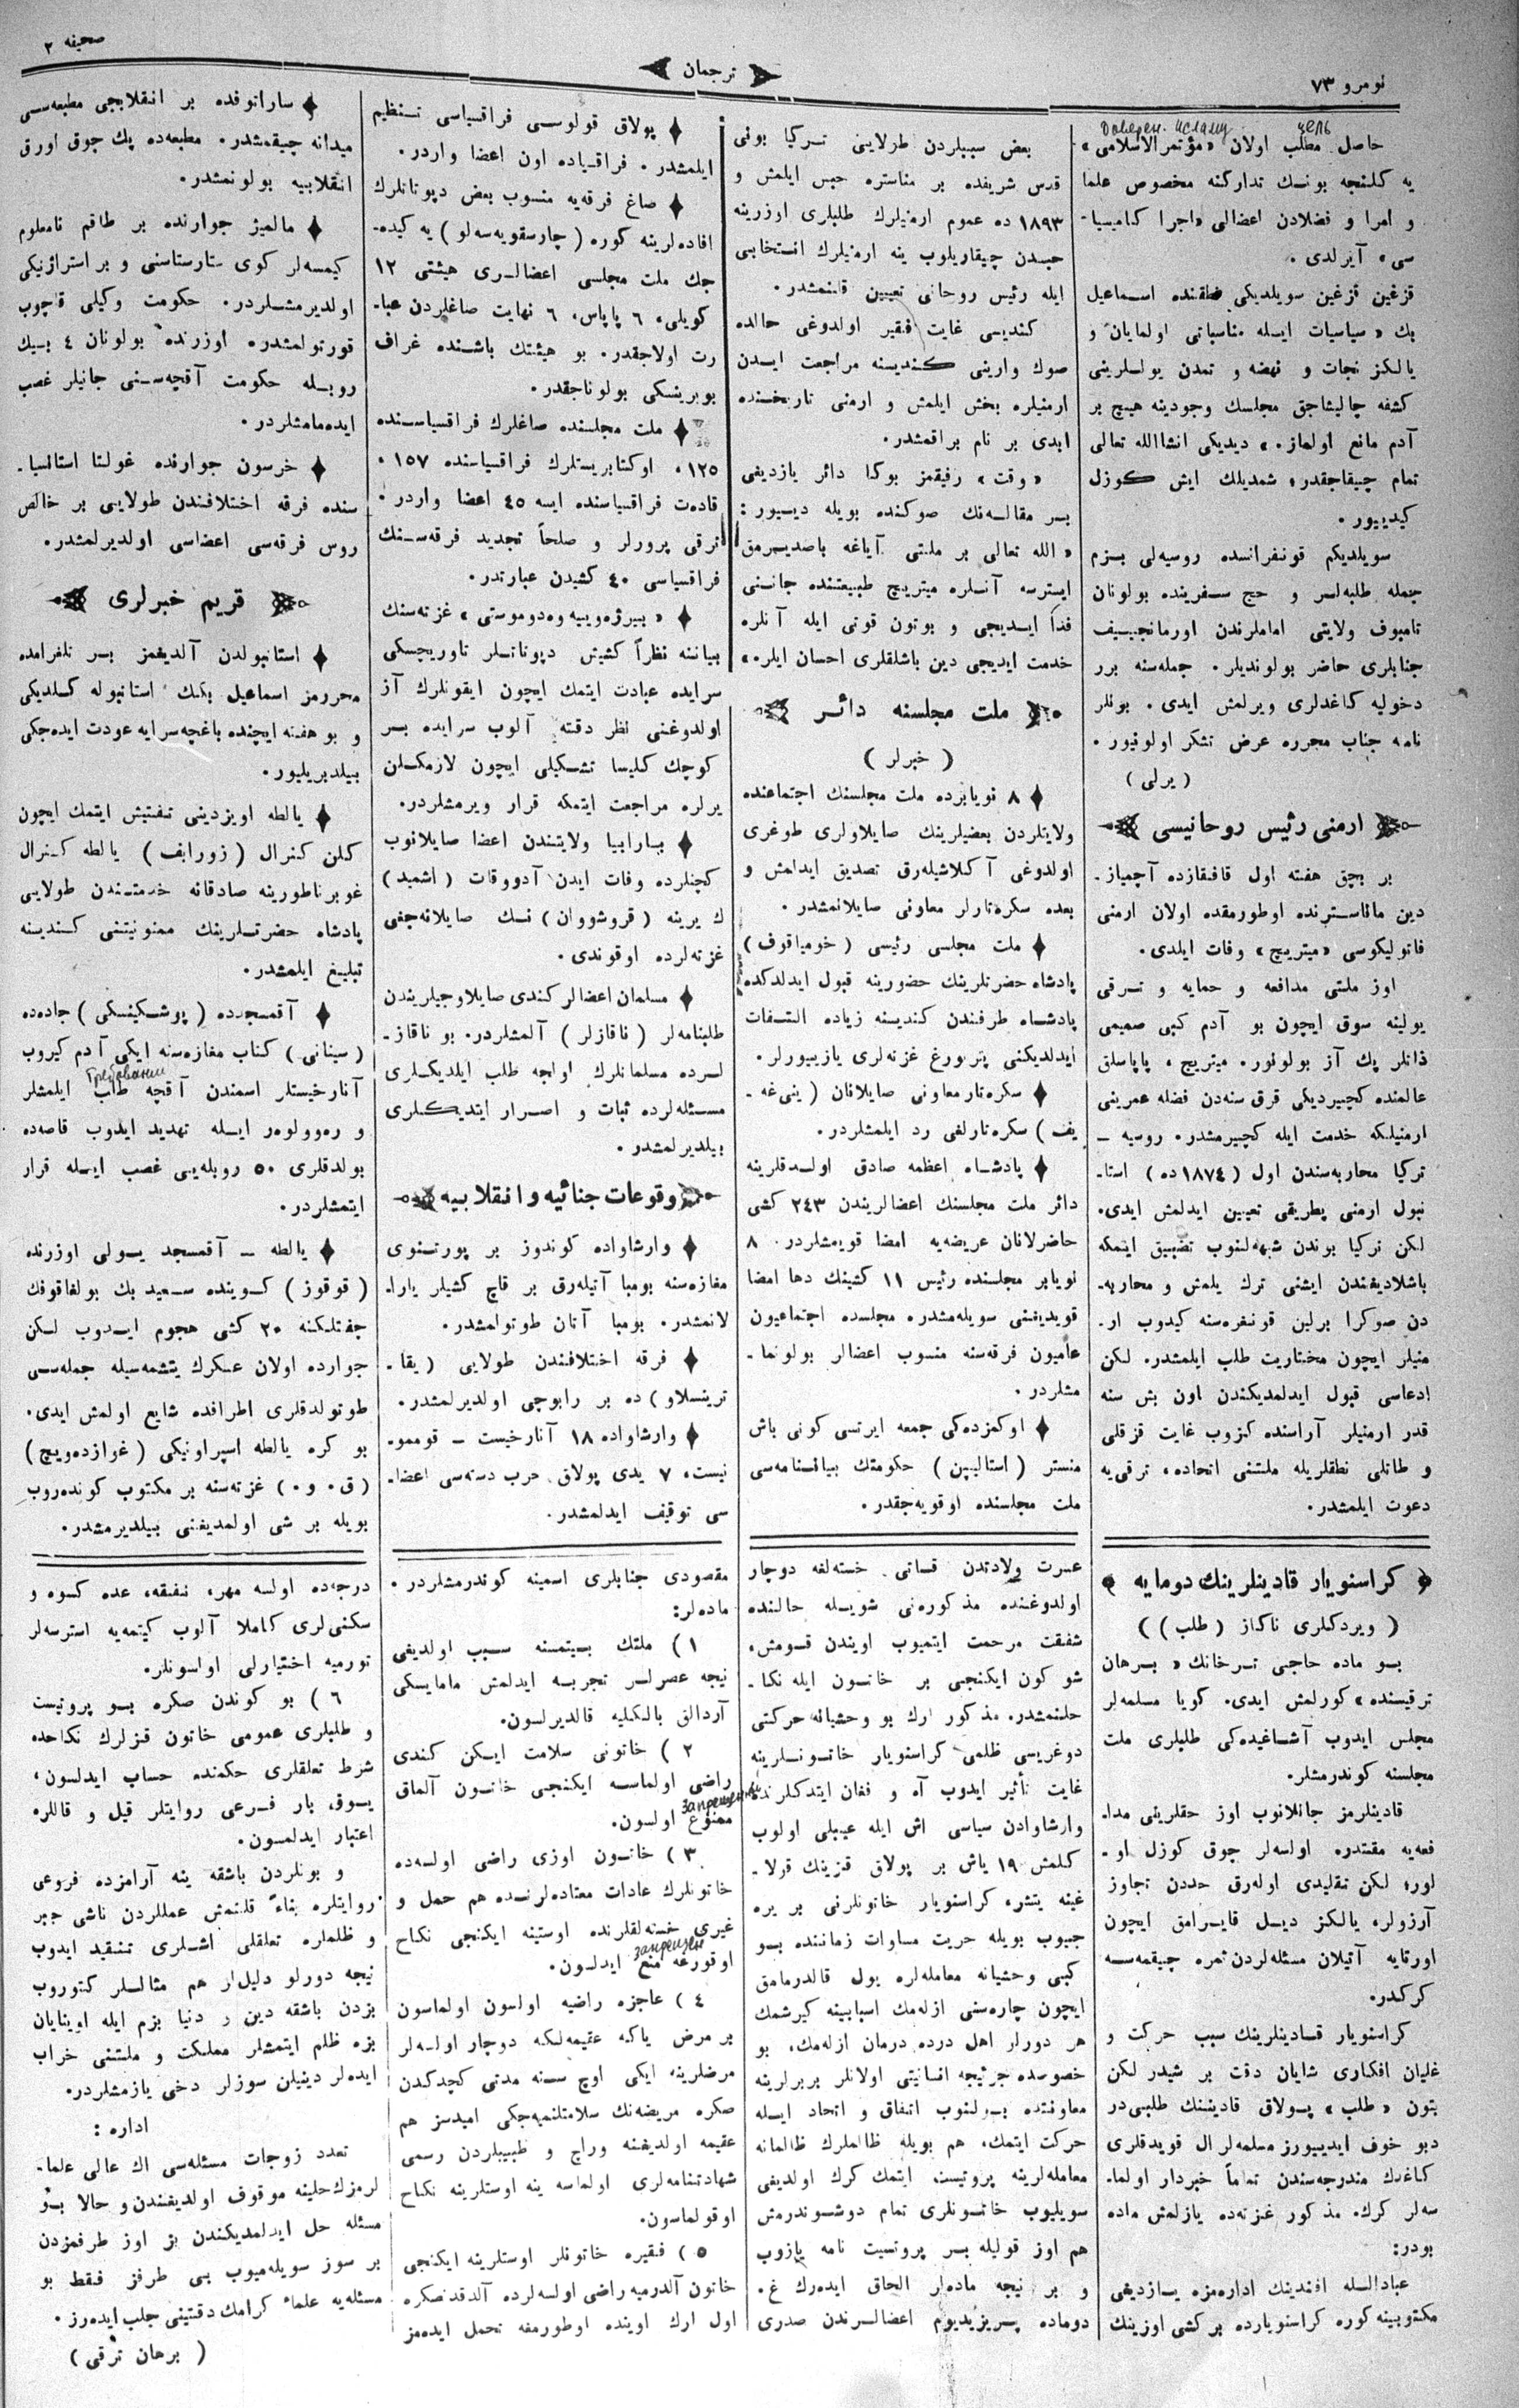 نومرو ۷۳
ترجمان
صحیفه ۲
Доверен. Исламу цель
حاصل مطلب اولان «مؤتمر الاسلامی»
یه کلنجه بونك تدارکنه مخصوص علما
و امرا و فضلادن اعضالی «اجرا کامیسیا-
سی» آیرلدی.
قزغین قزغین سویلدیکی نطقنده اسماعیل
بك «سیاسیات ایله مناسباتی اولمایان و
یالکز نجات و نهضه و تمدن یوللرینی
کشفه چالیشاجق مجلسك وجودینه هیچ بر
آدم مانع اولماز.» دیدیکی انشاالله تعالی
تمام چیقاجقدر؛ شمدیلك ایش کوزل
کیدییور.
سویلدیکم قونفرانسده روسیه‌لی بزم
جمله طلبه‌لر و حج سفرینده بولونان
تامبوف ولایتی اماملرندن اورمانچییف
جنابلری حاضر بولوندیلر. جمله‌سنه برر
دخولیه کاغدلری ویرلمش ایدی. بونلر
نامه جناب محرره عرض تشکر اولونیور.
(یرلی)
ارمنی رئیس روحانیسی
بر بچق هفته اول قافقازده آچمیاز-
دین ماناسترنده اوطورمقده اولان ارمنی
قاتولیکوسی «میتریچ» وفات ایلدی.
اوز ملتی مدافعه و حمایه و ترقی
یولینه سوق ایچون بو آدم کبی صمیمی
ذاتلر پك آز بولونور. میتریچ، پاپاسلق
عالمنده کچیردیکی قرق سنه‌دن فضله عمرینی
ارمنیلکه خدمت ایله کچیرمشدر. روسیه -
ترکیا محاربه‌سندن اول (۱۸۷٤ ده) استا-
نبول ارمنی پطریقی تعیین ایدلمش ایدی.
لکن ترکیا بوندن شبهه‌لنوب تضییق ایتمکه
باشلادیغندن ایشنی ترك یلمش و محاربه-
دن صوکرا برلین قونفره‌سنه کیدوب ار-
منیلر ایچون مختاریت طلب ایلمشدر. لکن
ادعاسی قبول ایدلمدیکندن اون بش سنه
قدر ارمنیلر آراسنده کزوب غایت قزقلی
و طاتلی نطقلریله ملتنی اتحاده، ترقی‌یه
دعوت ایلمشدر.
بعض سببلردن طولاینی ترکیا بونی
قدس شریفده بر مناستره حبس ایلمش و
۱۸۹۳ ده عموم ارمنیلرك طلبلری اوزرینه
حبسدن چیقاریلوب ینه ارمنیلرك انتخابی
ایله رئیس روحانی تعیین قلنمشدر.
کندیسی غایت فقیر اولدوغی حالده
صوك وارینی کندیسنه مراجعت ایدن
ارمنیلره بخش ایلمش و ارمنی تاریخنده
ابدی بر نام براقمشدر.
«وقت» رفیقمز بوکا دائر یازدیغی
بر مقاله‌نك صوکنده بویله دییور:
«الله تعالی بر ملتی آیاغه باصدیرمق
ایسترسه آنلره میتریچ طبیعتنده جاننی
فدا ایدیجی و بوتون قوتی ایله آنلره
خدمت ایدیجی دین باشلقلری احسان ایلر.»
ملت مجلسنه دائر
(خبرلر)
۸ نویابرده ملت مجلسنك اجتماعنده
ولایتلردن بعضیلرینك صایلاولری طوغری
اولدوغی آکلاشیله‌رق تصدیق ایدلمش و
بعده سکره‌تارلر معاونی صایلانمشدر.
ملت مجلسی رئیسی (خومیاقوف)
پادشاه حضرتلرینك حضورینه قبول ایدلدکده
پادشاه طرفندن کندیسنه زیاده التفات
ایدلدیکنی پتربورغ غزته‌لری یازییورلر.
سکره‌تار معاونی صایلانان (ینی‌غه-
یف) سکره‌تارلغی رد ایلمشلردر.
پادشاه اعظمه صادق اولدقلرینه
دائر ملت مجلسنك اعضالریندن ۲٤۳ کشی
حاضرلانان عریضه‌یه امضا قویمشلردر. ۸
نویابر مجلسنده رئیس ۱۱ کشینك دها امضا
قویدیغنی سویله‌مشدر. مجلسده اجتماعیون
عامیون فرقه‌سنه منسوب اعضالر بولونما-
مشلردر.
اوکمزده‌کی جمعه ایرتسی کونی باش
منستر (استالیپن) حکومتك بیاننامه‌سی
ملت مجلسنده اوقویه‌جقدر.
پولاق قولوسی فراقسیاسی تنظیم
ایلمشدر. فراقسیاده اون اعضا واردر.
صاغ فرقه‌یه منسوب بعض دپوتاتلرك
افاده‌لرینه کوره (چارسقویه‌سه‌لو) یه کیده-
جك ملت مجلسی اعضالری هیئتی ۱۲
کویلی، ٦ پاپاس، ٦ نهایت صاغلردن عبا-
رت اولاجقدر. بو هیئتك باشنده غراف
بوبرینسکی بولوناجقدر.
ملت مجلسنده صاغلرك فراقسیاسنده
۱۲٥، اوکتابریستلرك فراقسیاسنده ۱٥۷،
قادەت فراقسیاسنده ایسه ٤٥ اعضا واردر.
ترقی پرورلر و صلحاً تجدید فرقه‌سنك
فراقسیاسی ٤۰ کشیدن عبارتدر.
«بیرژه‌وییه وه‌دوموستی» غزته‌سنك
بیاننه نظراً کشیش دپوتاتلر تاوریچسکی
سرایده عبادت ایتمك ایچون ایقونلرك آز
اولدوغنی نظر دقته آلوب سرایده بر
کوچك کلیسا تشکیلی ایچون لازمکلن
یرلره مراجعت ایتمکه قرار ویرمشلردر.
بسارابیا ولایتندن اعضا صایلانوب
کچنلرده وفات ایدن آدووقات (اشمید)
ك یرینه (قروشووان) نك صایلانه‌جغی
غزته‌لرده اوقوندی.
مسلمان اعضالر کندی صایلاوجیلریندن
طلبنامه‌لر (ناقازلر) آلمشلردر. بو ناقاز-
لرده مسلمانلرك اولجه طلب ایلدیکلری
مسئله‌لرده ثبات و اصرار ایتدیکلری
بیلدیرلمشدر.
وقوعات جنائیه و انقلابیه
وارشاواده کوندوز بر پورتنوی
مغازه‌سنه بومبا آتیله‌رق بر قاچ کشیلر یارا-
لانمشدر. بومبا آتان طوتولمشدر.
فرقه اختلافندن طولایی (یقا-
ترینسلاو) ده بر رابوچی اولدیرلمشدر.
وارشاواده ۱۸ آنارخیست - قوممو-
نیست، ۷ یدی پولاق حرب دسته‌سی اعضا-
سی توقیف ایدلمشدر.
ساراتوفده بر انقلابجی مطبعه‌سی
میدانه چیقمشدر. مطبعه‌ده پك چوق اورق
انقلابیه بولونمشدر.
مالمیژ جوارنده بر طاقم نامعلوم
کیمسه‌لر کوی ستارستاسنی و بر استراژنیکی
اولدیرمشلردر. حکومت وکیلی قاچوب
قورتولمشدر. اوزرنده بولونان ٤ بیك
روبله حکومت آقچه‌سنی جانیلر غصب
ایده‌مامشلردر.
خرسون جوارنده غولتا استانسیا-
سنده فرقه اختلافندن طولایی بر خالص
روس فرقه‌سی اعضاسی اولدیرلمشدر.
قریم خبرلری
استانبولدن آلدیغمز بر تلغرامده
محررمز اسماعیل بكك استانبوله کلدیکی
و بو هفته ایچنده باغچه‌سرایه عودت ایده‌جکی
بیلدیریلیور.
یالطه اویزدینی تفتیش ایتمك ایچون
کلن کنرال (زورابف) یالطه کنرال
غوبرناطورینه صادقانه خدمتندن طولایی
پادشاه حضرتلرینك ممنونیتنی کندینه
تبلیغ ایلمشدر.
آقمسجدده (پوشکینسکی) جاده‌ده
(سینانی) کتاب مغازه‌سنه ایکی آدم کیروب
Требовании
آنارخیستلر اسمندن آقچه طلب ایلمشلر
و ره‌وولوه‌ر ایله تهدید ایدوب قاصه‌ده
بولدقلری ٥۰ روبله‌یی غصب ایله قرار
ایتمشلردر.
یالطه - آقمسجد یولی اوزرنده
(قوقوز) کوینده سعید بك بولغاقوفك
جفتلکنه ۲۰ کشی هجوم ایدوب لکن
جوارده اولان عسکرك یتشمه‌سیله جمله‌سی
طوتولدقلری اطرافده شایع اولمش ایدی.
بو کره یالطه اسپراونیکی (غوازده‌ویچ)
(ق. و.) غزته‌سنه بر مکتوب کونده‌روب
بویله بر شی اولمدیغنی بیلدیرمشدر.
کراسنویار قادینلرینك دومایه
(ویردکلری ناکاز (طلب))
بو ماده حاجی ترخانك «برهان
ترقیسنده» کورلمش ایدی. کویا مسلمه‌لر
مجلس ایدوب آشاغیده‌کی طلبلری ملت
مجلسنه کوندرمشلر.
قادینلرمز جانلانوب اوز حقلرینی مدا-
فعه‌یه مقتدره اولسه‌لر چوق کوزل او-
لور؛ لکن تقلیدی اوله‌رق حددن تجاوز
آرزولر، یالکز دیل قایرامق ایچون
اورتایه آتیلان مسئله‌لردن ثمره چیقمه‌سه
کرکدر.
کراسنویار قادینلرینك سبب حرکت و
غلیان افکاری شایان دقت بر شیدر لکن
بتون «طلب» پولاق قادیننك طلبی‌در
دیو خوف ایدییورز مسلمه‌لر ال قویدقلری
کاغدك مندرجه‌سندن تماماً خبردار اولما-
سه‌لر کرك. مذکور غزته‌ده یازلمش ماده
بودر:
عبادالله افندینك اداره‌مزه یازدیغی
مکتوبینه کوره کراسنویارده بر کشی اوزینك
عسرت ولادتدن قساتی خسته‌لغه دوچار
اولدوغنده مذکوره‌نی شویله حالنده
شفقت مرحمت ایتمیوب اویندن قومش،
شو کون ایکنجی بر خاتون ایله نکا-
حلنمشدر. مذکور ارك بو وحشیانه حرکتی
دوغریسی ظلمی کراسنویار خاتونلرینه
غایت تأثیر ایدوب آه و فغان ایتدکلرنده
وارشاوادن سیاسی اش ایله عیبلی اولوب
کلمش ۱۹ یاش بر پولاق قزینك قولا-
غینه یتشر، کراسنویار خاتونلرنی بر یره
جیوب بویله حریت مساوات زماننده بو
کبی وحشیانه معامله‌لره یول قالدرمامق
ایچون چاره‌سنی ازله‌مك اسبابینه کیرشمك
هر دورلر اهل درده درمان ازله‌مك، بو
خصوصده جزئیجه انسانیتی اولانلر بربرلرینه
معاونتده بولنوب اتفاق و اتحاد ایله
حرکت ایتمك، هم بویله ظالملرك ظالمانه
معامله‌لرینه پروتیست ایتمك کرك اولدیغی
سویلیوب خاتونلری تمام دوشوندرمش
هم اوز قولیله بر پروتست نامه یازوب
و بر نیچه ماده‌لر الحاق ایده‌رك غ.
دوماده پریزیدیوم اعضالرندن صدری
مقصودی جنابلری اسمینه کوندرمشلردر.
ماده‌لر:
۱) ملتك بیتمسنه سبب اولدیغی
نیجه عصرلر تجربه ایدلمش مامایسکی
آردالق بالکلیه قالدیرلسون.
۲) خاتونی سلامت ایکن کندی
راضی اولماسه ایکنجی خاتون آلماق
Запрещенный
ممنوع اولسون.
۳) خاتون اوزی راضی اولسه‌ده
خاتونلرك عادات معتاده‌لرنده هم حمل و
غیری خسته‌لقلرنده اوستینه ایکنجی نکاح
запрещен
اوقورغه منع ایدلسون.
٤) عاجزه راضیه اولسون اولماسون
بر مرض یاکه عقیمه‌لکه دوچار اولسه‌لر
مرضلرینه ایکی اوچ سنه مدتی کچدکدن
صکره مریضه‌نك سلامتلنمیه‌جکی امیدسز هم
عقیمه اولدیغنه وراچ و طبیبلردن رسمی
شهادتنامه‌لری اولماسه ینه اوستلرینه نکاح
اوقولماسون.
٥) فقیره خاتونلر اوستلرینه ایکنجی
خاتون آلدرمیه راضی اولسه‌لرده آلدقدنصکره
اول ارك اوینده اوطورمغه تحمل ایده‌مز
درجه‌ده اولسه مهر، نفقه، عده کسوه و
سکنی‌لری کاملا آلوب کیتمه‌یه استرسه‌لر
تورمیه اختیارلی اولسونلر.
٦) بو کوندن صکره بو پروتیست
و طلبلری عمومی خاتون قزلرك نکاحده
شرط تعلقلری حکمنده حساب ایدلسون،
یوق بار فرعی روایتلر قیل و قاللره
اعتبار ایدلمسون.
و بونلردن باشقه ینه آرامزده فروعی
روایتلره بناءً قلنمش عمللردن ناشی جبر
و ظلملره تعلقلی اشلری تنقید ایدوب
نیجه دورلو دلیللر هم مثاللر کتوروب
بزدن باشقه دین و دنیا بزم ایله اوینایان
بزه ظلم ایتمشلر مملکت و ملتنی خراب
ایده‌لر دینیلن سوزلر دخی یازمشلردر.
اداره:
تعدد زوجات مسئله‌سی اك عالی علما-
لرمزك حلینه موقوف اولدیغندن و حالا بو
مسئله حل ایدلمدیکندن بز اوز طرفمزدن
بر سوز سویله‌میوب بی طرفز فقط بو
مسئله‌یه علماء کرامك دقتینی جلب ایده‌رز.
(برهان ترقی)